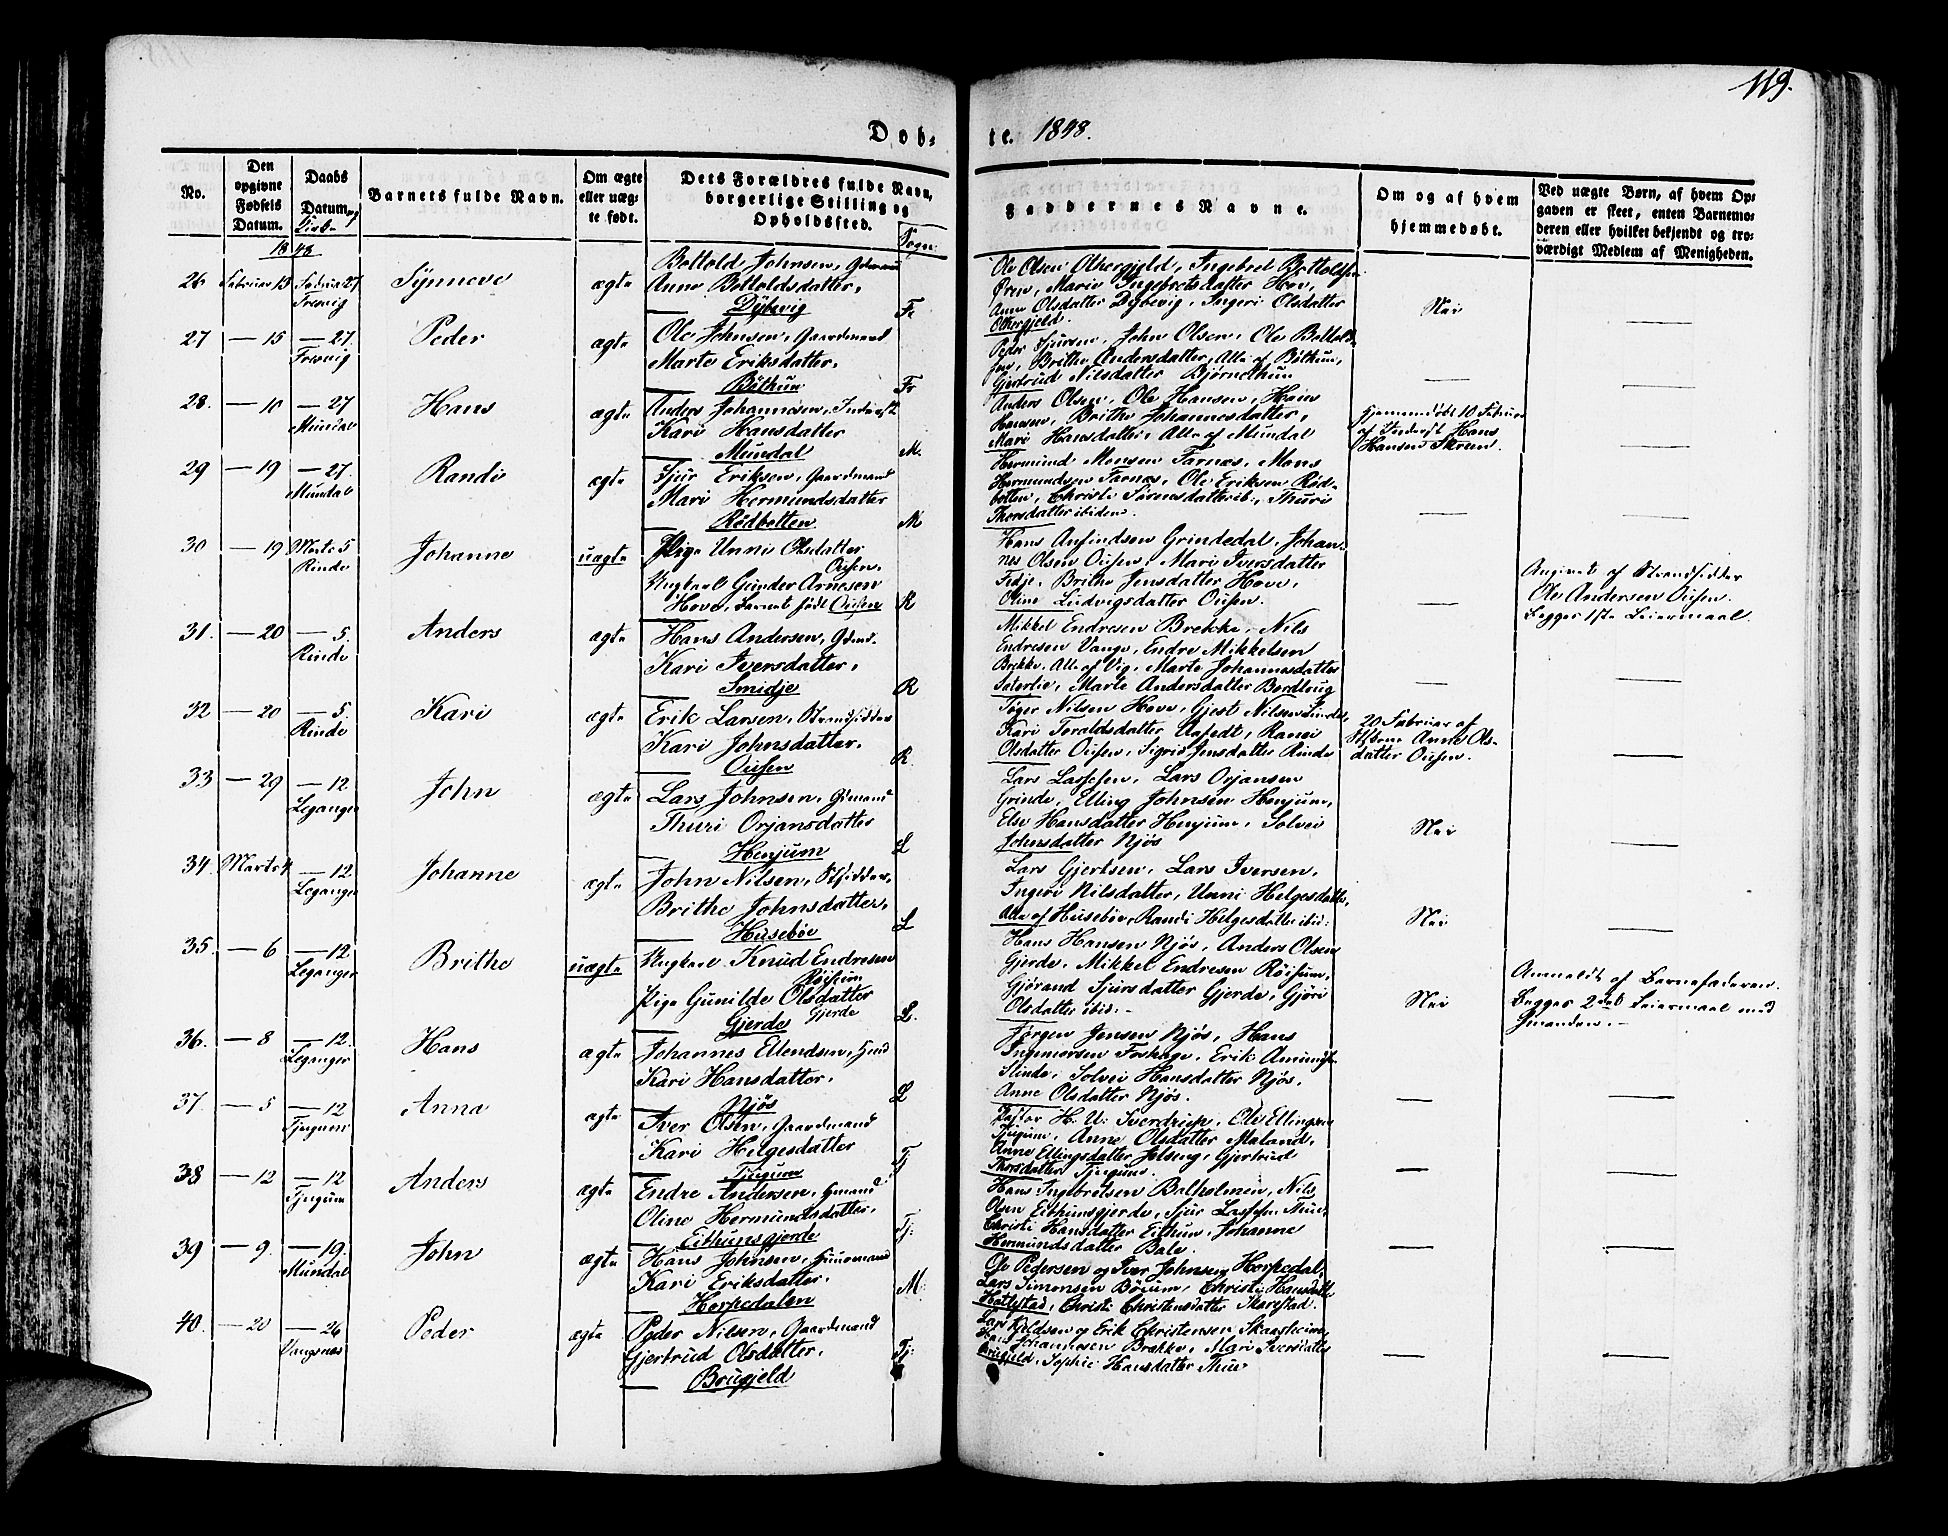 119.
Døb- te. 1848.
No.
Den opgivne Fødsels Datum.
Daabs Datum og Kirke
Barnets fulde Navn.
Om ægte eller uægte født.
Dets Forældres fulde Navn, borgerlige Stilling og Opholdssted.
Sogn:
Faddernes Navne.
Om og af hvem hjemmedøbt.
Ved uægte Børn, af hvem Opgaven er skeet, enten Barnemoderen eller hvilket bekjendt og troværdigt Medlem af Menigheden.
1848
26 Februar 13 Februar 27 Fresvig Synneve ægte
Bottold Johnsen,
Anne Bottoldsdatter,
Dybevig Fr
Ole Olsen Othergjeld, Ingebret Bottoldsen
Øren, Marie Ingebretsdatter Hov,
Anne Olsdatter Dybevig, Ingeri Olsdatter
Othergjeld.
Nei
27 — 15 — 27. Fresvig Peder ægte
Ole Johnsen, Gaardmand
Marte Eriksdatter,
Bøthun Fr
Peder Sjursen, John Olsen, Ole Bottold-
sen, Brithe Andersdatter, Alle af Bøthun,
Gjertrud Nilsdatter Bjørnethun
28. — 10 — 27 Mundal Hans ægte
Anders Johannesen, Inderst
Kari Hansdatter
Mundal M.
Anders Olsen, Ole Hansen, Hans
Hansen, Brithe Johannesdatter,
Mari Hansdatter, Alle af Mundal
Hjemmedøbt 10 Februar
af Inderst Hans
Hansen Skreen.
29 — 19 — 27. Mundal Randi ægte
Sjur Eriksen, Gaardmand
Mari Hermundsdatter
Rødbotten M
Hermund Monsen Farnæs, Mons
Hermundsen Farnæs, Ole Eriksen Rød-
botten, Christi Simensdatter ib:, Thuri
Thorsdatter ibidem.
30 — 19 Marts 5 Rinde Johanne uægte
Pige Unni Olsdatter
Ousen,
Ungkarl Gunder Arnesen
Hove, barnet født Ousen R
Hans Anfindsen Grindedal, Johan-
nes Olsen Ousen, Mari Iversdatter
Fedje, Brithe Jensdatter Hove,
Oline Ludvigsdatter Ousen.
Angivet af Strandsidder
Ole Andersen Ousen.
Begges 1ste Leiermaal.
31. — 20 — 5. Rinde Anders ægte
Hans Andersen,
Kari Iversdatter,
Smidje R
Mikkel Endresen Brekke, Nils
Endresen Vange, Endre Mikkelsen
Brekke, Alle af Vig, Marte Johannesdatter
Sæterlie, Marte Andersdatter Bordloug
32 — 20 — 5. Rinde Kari ægte
Erik Larsen, Strandsidder
Kari Johnsdatter,
Ousen R.
Tøger Nilsen Hove, Gjest Nilsen Linde,
Kari Toraldsdatter Ugledt, Ranei
Olsdatter Ousen, Sigrid Jensdatter Rinde
20 Februar af
Anne Ols-
datter Ousen.
33 — 29 — 12. Leganger John ægte
Lars Johnsen, Gdmand
Thuri Orjansdatter
Henjum L
Lars Lassesen, Lars Orjansen
Grinde, Elling Johnsen Henjum,
Else Hansdatter Henjum, Solvei
Johnsdatter Njøs
Nei
34. Marts 4 — 12. Leganger Johanne ægte
John Nilsen, Stsidder,
Brithe Johnsdatter,
Husebøe L
Lars Gjertsen, Lars Iversen,
Ingeri Nilsdatter, Unni Helgesdatter,
Alle af Husebøe, Randi Helgesdatter ibid:
Nei
35. — 6 — 12. Leganger Brithe uægte
Ungkarl Knud Endresen
Røisum
Pige Gunilde Olsdatter
Gjerde
Gjerde L.
Hans Hansen Njøs, Anders Olsen
Gjerde, Mikkel Endresen Røisum,
Gjørand Sjursdatter Gjerde, Gjøri
Olsdatter ibid:-
Nei
Anmeldt af Barnefaderen.
Begges 2det Leiermaal med
hinanden.-
36. — 8 — 12. Leganger Hans ægte
Johannes Ellendsen,
Kari Hansdatter,
Njøs L
Jørgen Jensen Njøs, Hans
Ingemorsen Foshage, Erik Amundsen
Slinde, Solvei Hansdatter Njøs.
Anne Olsdatter Njøs.
37. — 5 — 12 Tjugum Anna ægte
Iver Olsen, Gaardmand
Kari Helgesdatter
Tjugum Tj
Pastor H. U. Sverdrup, Ole Ellingsen
Tjugum, Anne Olsdatter Maland,
Anne Ellingsdatter Gjertrud
Thorsdatter Tjugum.
38 — 12 — 12 Tjugum Anders ægte
Endre Andersen,
Oline Hermundsdatter,
Eithunsgjerde Tj:
Hans Ingebretsen Balholmen, Nils
Olsen Eithunsgjerde, Sjur Lassesen Thue,
Christi Hansdatter Eithun, Johanne
Hermundsdatter Bale.
39 — 9. — 19. Mundal John ægte
Hans Johnsen, Huusmand
Kari Eriksdatter,
Horpedalen M:
Ole Pedersen og Iver Johnsen Horpedal,
Lars Simonsen Børium, Christi Hansdatter
Hatlestad, Christi Christensdatter Skarestad.
40. — 20 — 26 Vangsnæs Peder ægte
Peder Nilsen, Gaardmand
Gjertrud Olsdatter,
Brugjeld Tj:
Lars Kjeldsen og Erik Christensen Skaasheim,
Hans Johannesen Brekke, Mari Iversdatter
Brugjeld, Sophie Hansdatter Thue